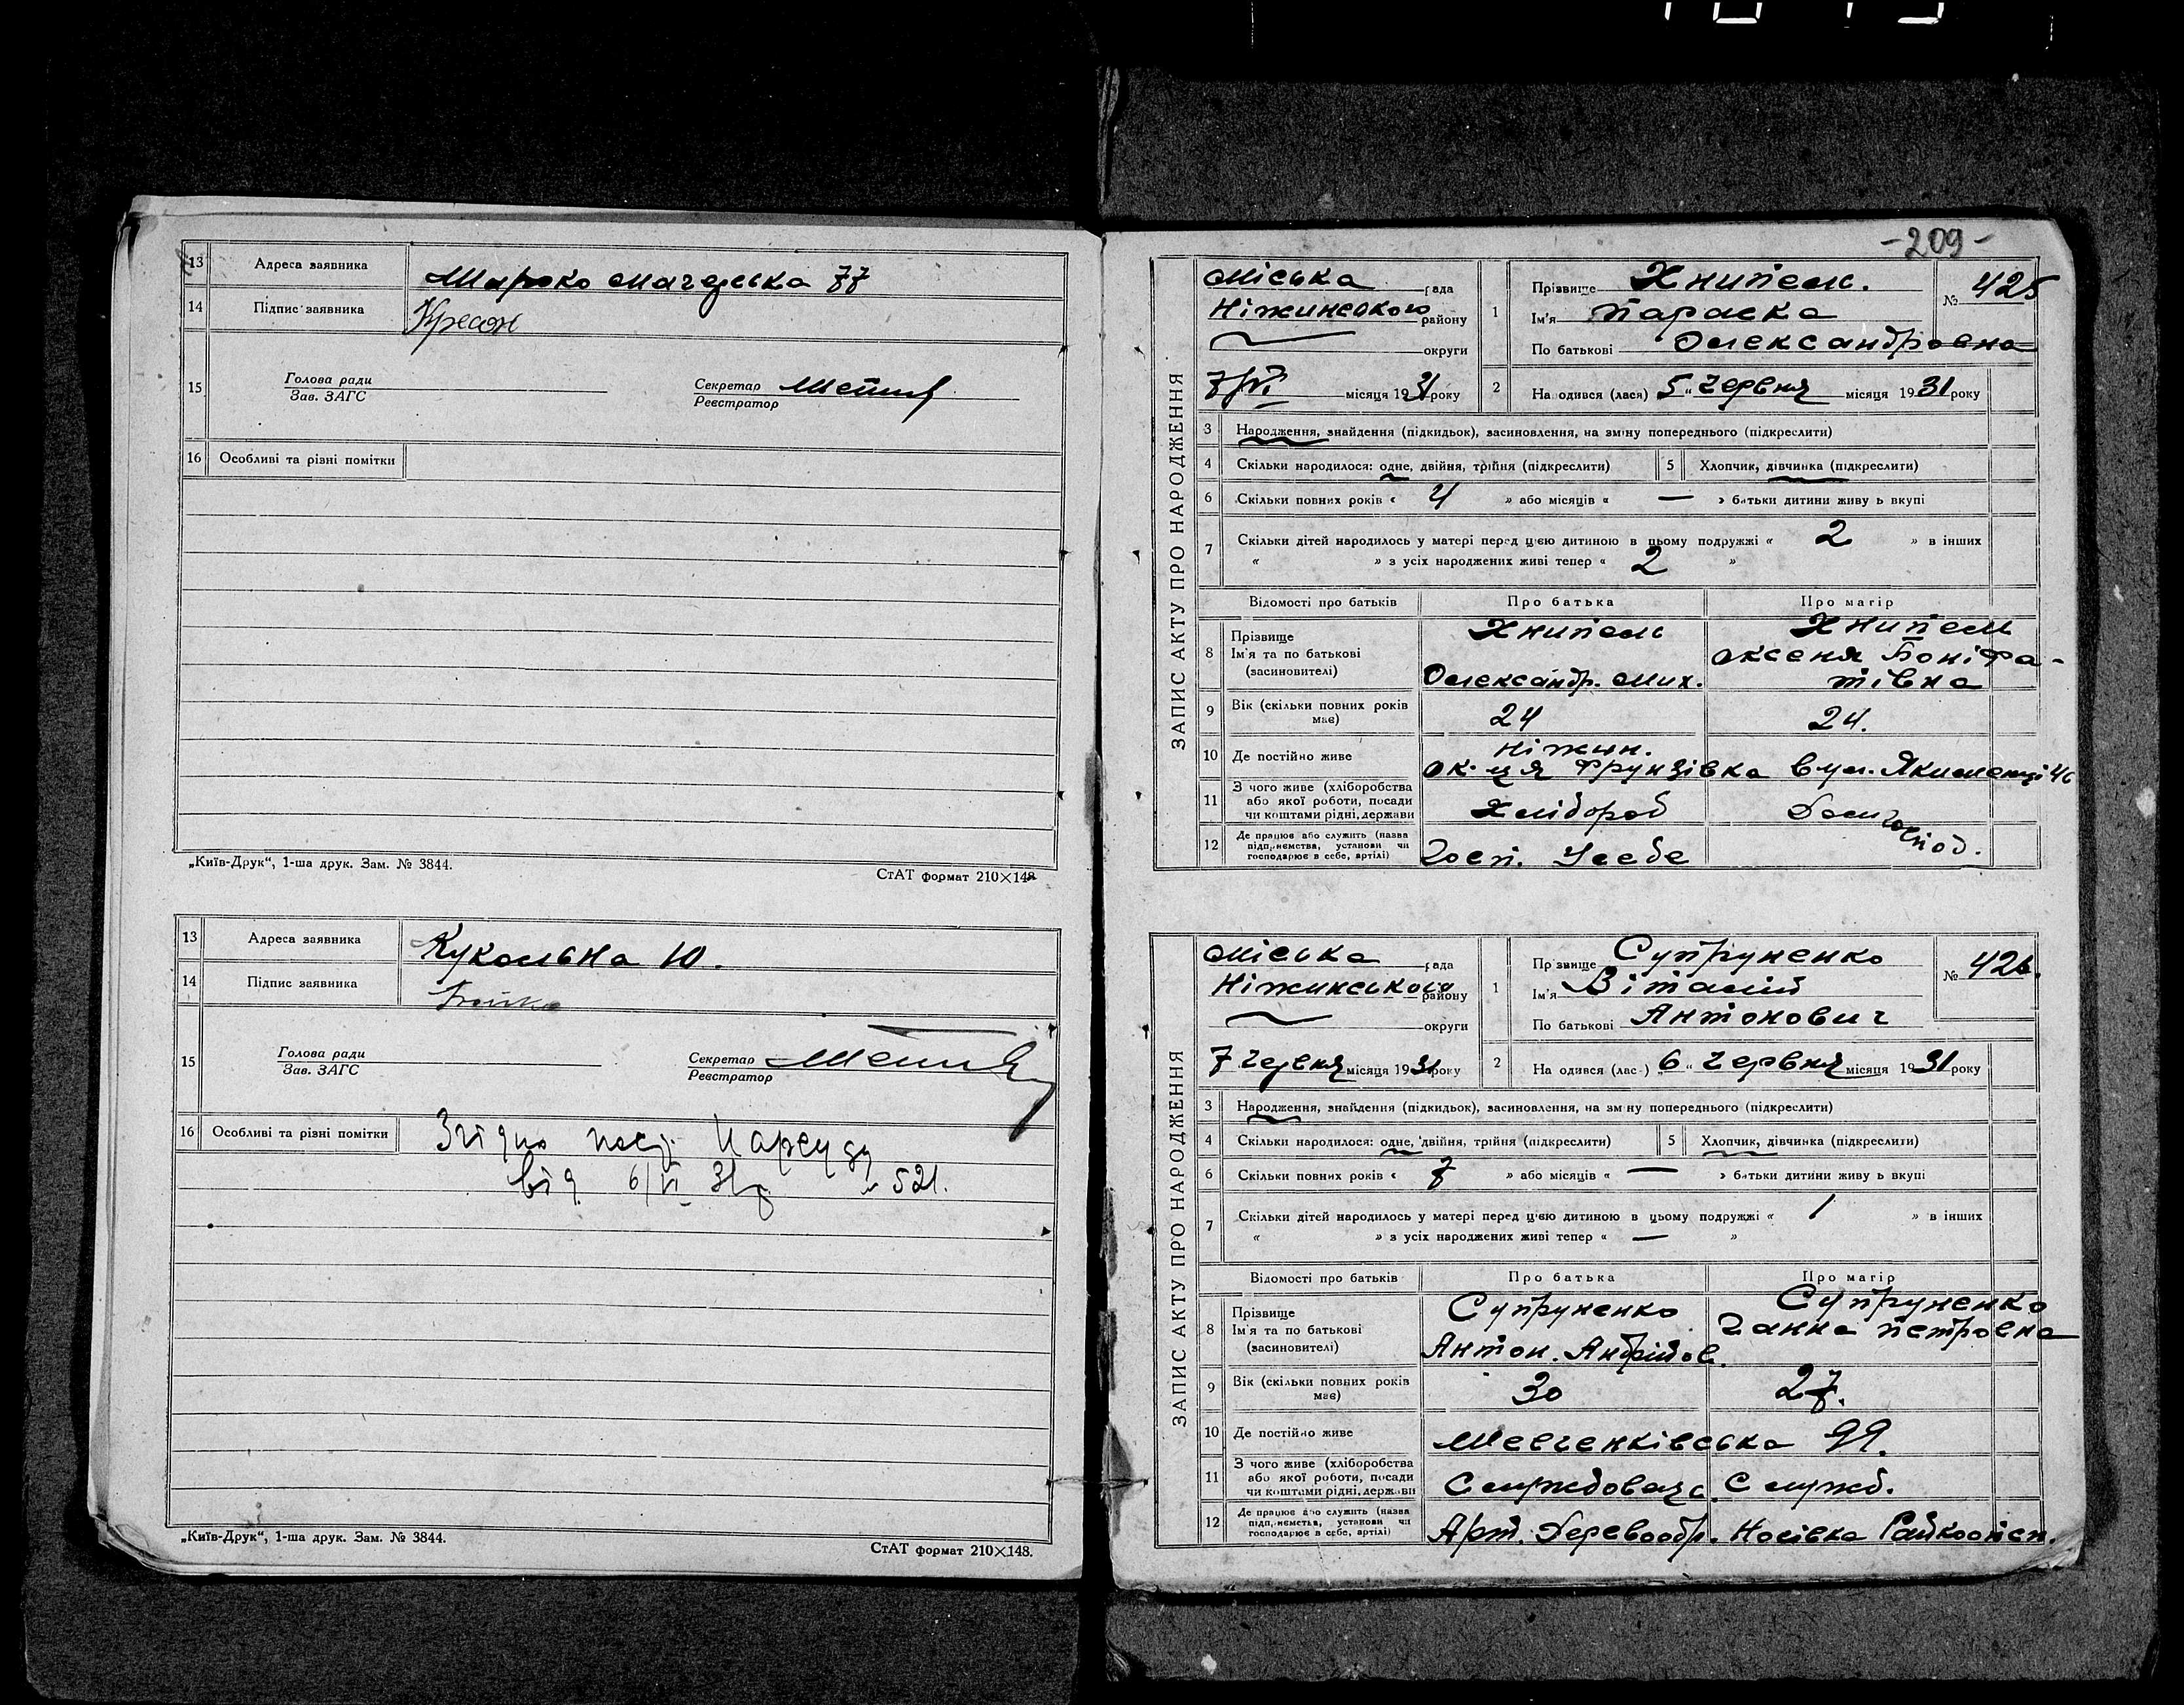 13 Адреса заявника Широко Магерська 77
14 Підпис заявника
15 Голова ради Секретар
Зав. ЗАГС Реєстратор
16 Особливі та різні помітки
„Київ-Друк“, 1-ша друк. Зам. № 3844.
СтАТ формат 210×148
13 Адреса заявника Кукольна 10.
14 Підпис заявника
15 Голова ради Секретар
Зав. ЗАГС Реєстратор
16 Особливі та різні помітки Згідно Нарсуду
від 6/VI 31р № 521.
„Київ-Друк“, 1-ша друк. Зам. № 3844.
СтАТ формат 210×148.
-209-
ЗАПИС АКТУ ПРО НАРОДЖЕННЯ
Міська рада
Ніжинського району
округи
7/VI місяця 1931 року
1 Прізвище Книпель.
Ім'я Параска
По батькові Олександровна
№ 425
2 Народився (лася) 5 „ Червня місяця 1931 року
3 Народження, знайдення (підкидьок), засиновлення, на зміну попереднього (підкреслити)
4 Скільки народилося: одне, двійня, трійня (підкреслити) 5 Хлопчик, дівчинка (підкреслити)
6 Скільки повних років « 4 » або місяців « — » батьки дитини живуть вкупі
7 Скільки дітей народилось у матері перед цією дитиною в цьому подружжі « 2 » в інших
« » з усіх народжених живі тепер « 2 »
Відомості про батьків Про батька Про матір
8 Прізвище Книпель Книпель
Ім'я та по батькові Оксеня Боніфа-
(засиновителі) Олександр. Мих. тівна
9 Вік (скільки повних років має) 24 24.
10 Де постійно живе Ніжин.
Ок-ця Фрунзівка вул. Якименці 46
11 З чого живе (хліборобства або якої роботи, посади чи коштами рідні, держави Хлібороб Дом. господ.
12 Де працює або служить (назва підприємства, установи чи господарює в себе, артілі) Госп. У себе
ЗАПИС АКТУ ПРО НАРОДЖЕННЯ
Міська рада
Ніжинського району
округи
7 Червня місяця 1931 року
1 Прізвище Супруненко
Ім'я Віталій
По батькові Антонович
№ 426.
2 Народився (лася) „6 „ Червня місяця 1931 року
3 Народження, знайдення (підкидьок), засиновлення, на зміну попереднього (підкреслити)
4 Скільки народилося: одне, двійня, трійня (підкреслити) 5 Хлопчик, дівчинка (підкреслити)
6 Скільки повних років « 7 » або місяців « — » батьки дитини живуть вкупі
7 Скільки дітей народилось у матері перед цією дитиною в цьому подружжі « 1 » в інших
« » з усіх народжених живі тепер « — »
Відомості про батьків Про батька Про матір
8 Прізвище Супруненко Супруненко
Ім'я та по батькові Ганна Петровна
(засиновителі) Антон. Андрійов.
9 Вік (скільки повних років має) 30 27.
10 Де постійно живе Шевченківська 99.
11 З чого живе (хліборобства або якої роботи, посади чи коштами рідні, держави Службовець. Служб.
12 Де працює або служить (назва підприємства, установи чи господарює в себе, артілі) Арт. Деревообр. Носівка Райкоопсп.